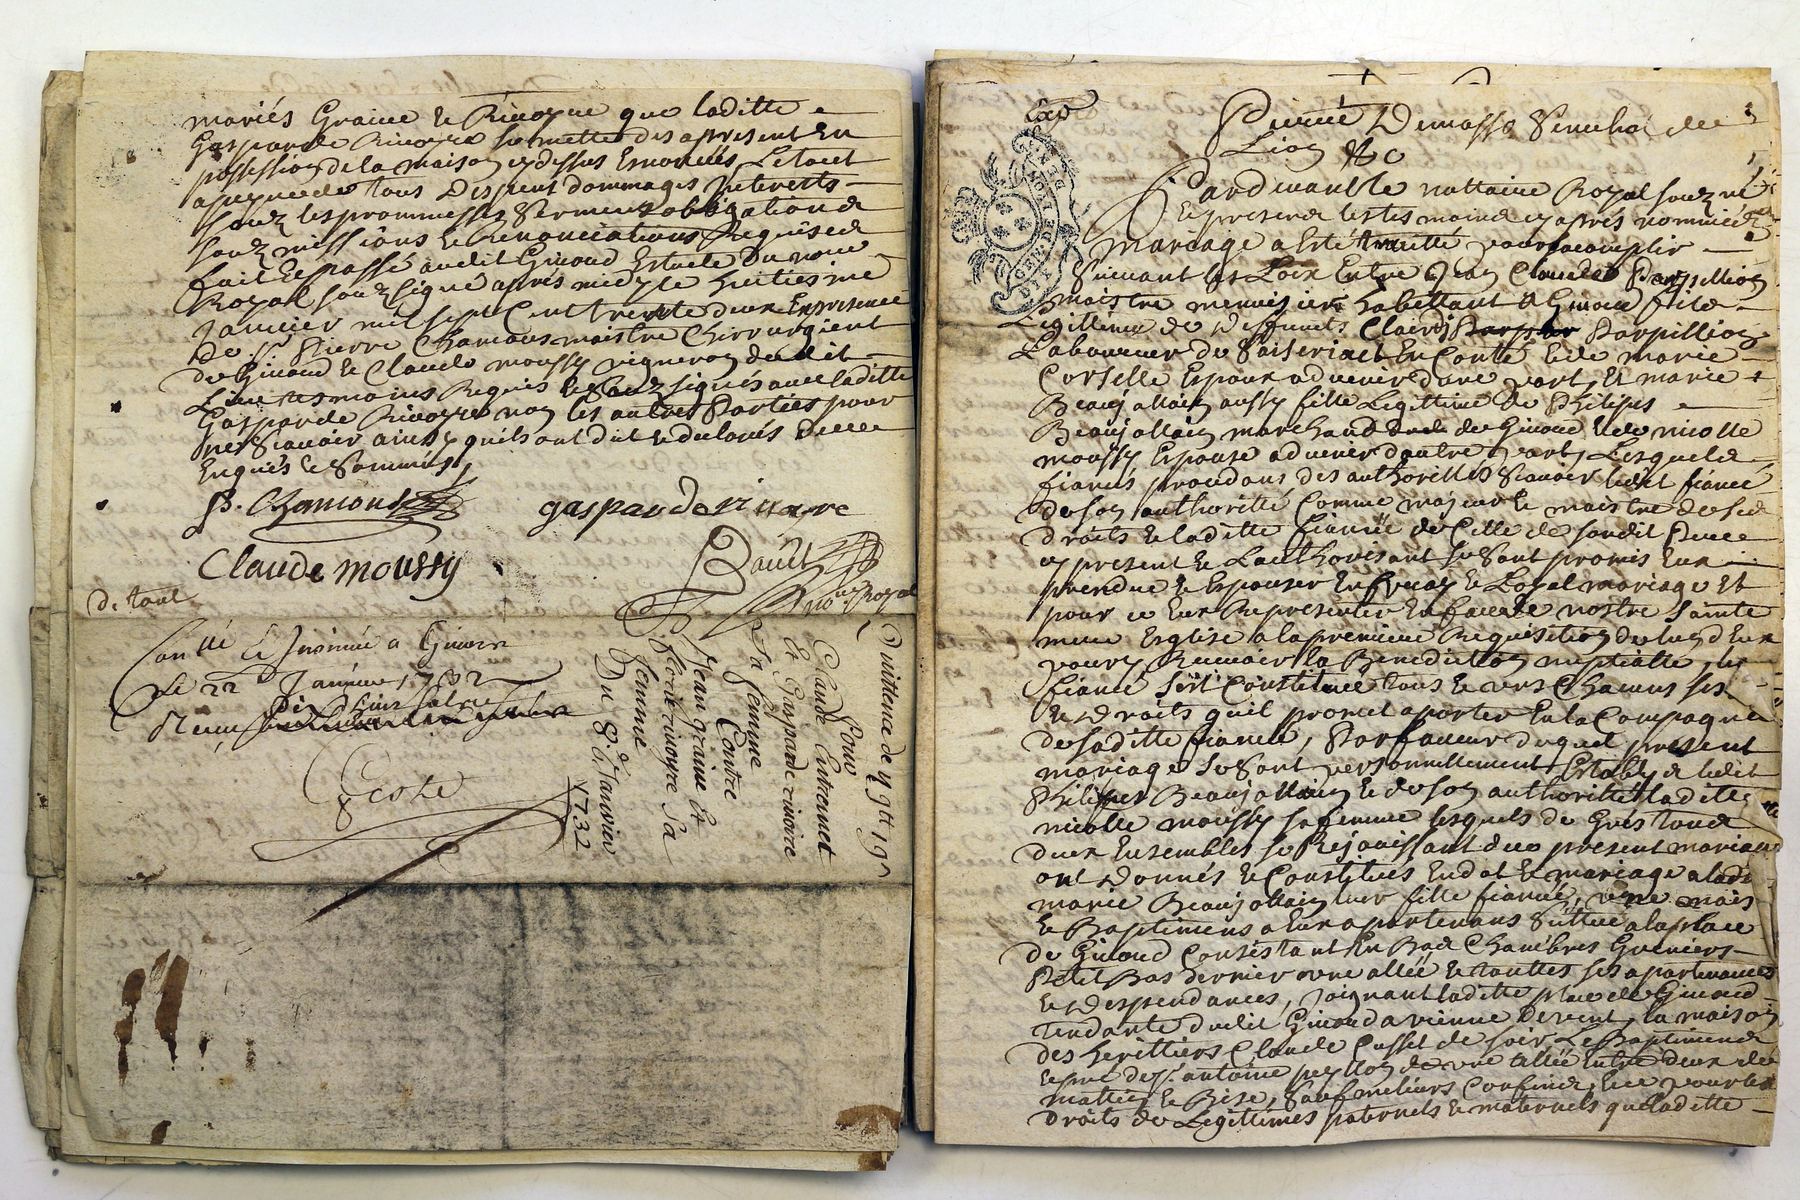 mariés Graine & Rivoyre que laditte
Gasparde Rivoyre se mette des apresent en
possession de la maison cy dessus Enoncées, Letout
apeyne de tous Despens dommages Interests
souz les prommesses sermens obligations
souz missions & Renonciations Requises
fait & passé audit Givord Estude du no.re
Royal souzsigné aprés midy le huitiesme
Janvier mil sept Cent trente deux En presence
de Sr. Pierre Chamous maistre Chirurgient
de Givord & Claude moussy vigneron dudit
Lieu tesmoins Requis & souzsignés avec laditte
Gasparde Rivoyre non les autres Parties pour
ne sçavoir ainsy quils ont dit & declarés de ce
Enquis & sommés
P. Chamous
gasparde rivoyre
Claude moussy
Bault
no.re Royal
de tout
Con llé & Insinué a Givors
Le 22 Janvier 1732
Reçu
Coste
Quittence de
Pour
Claude
Et Gasparde rivoire
Sa femme
Contre
Jean graine Et
rivoyre Sa
femme
Du 8.e Janvier
1732
Pierre Demasso Senechal de
Lion &c
Pardevant le nottaire Royal souzsigné
& presens les tesmoins cy aprés nommés
mariage a Esté traitté pour sacomplir
suivant les Loix Entre Jean Claude Parpillion
maistre menuisier habittant a Givord fils
Legittime de deffunts Claude Parpillion
Laboureur de En Conté & de marie
Corselle Espoux advenir d'une part, Et marie
Beaujollain aussy fille Legittime de Philipes
Beaujollain marchand de Givord & de nicolle
moussy Espouse advenir d'autre part, Lesquels
fiancés procedans des authorittés sçavoir ledit fiancé
de son authoritté Comme majeur & maistre de ses
droits & laditte fiancée de Celle de sondit Pere
cy present & Lauthorisant se sont promis Eux
prendre & Espouser En vray & Loyal mariage Et
pour ce Eux Representer En face de nostre Sainte
mere Esglise a la premiere Requisition de lun d'Eux
pour y Recevoir la Benediction nuptialle, le
fiancé sest Constitué tous & uns Chacuns ses
& droits quil promet aporter En la Compagnie
de saditte fiancée, Par faveur duquel present
mariage se sont personnellement Establis ledit
Philipes Beaujollain & de son authoritté laditte
nicolle moussy sa femme lesquels de gré tous
deux Ensembles se Rejouissant du present mariage
ont donnés & Constitués En dot & mariage a ladite
marie Beaujollain leur fille fiancée, une mais
& Baptimens a Eux apartenans scittué a la place
de Givord Consistant En Bas Chambres Greniers
Petit Bas dernier une allée & touttes ses apartenances
& despendances, joignant laditte place de Givord
tendante dudit Givord a vienne de vent, la maison
des herittiers Claude Cusset de soir Le Baptimens
de Sr. antoine une allée Entre deux de
mattin & Bize, Sauf meliurs Confins, & ce pour les
droits de Legittimes paternels & maternels que laditte